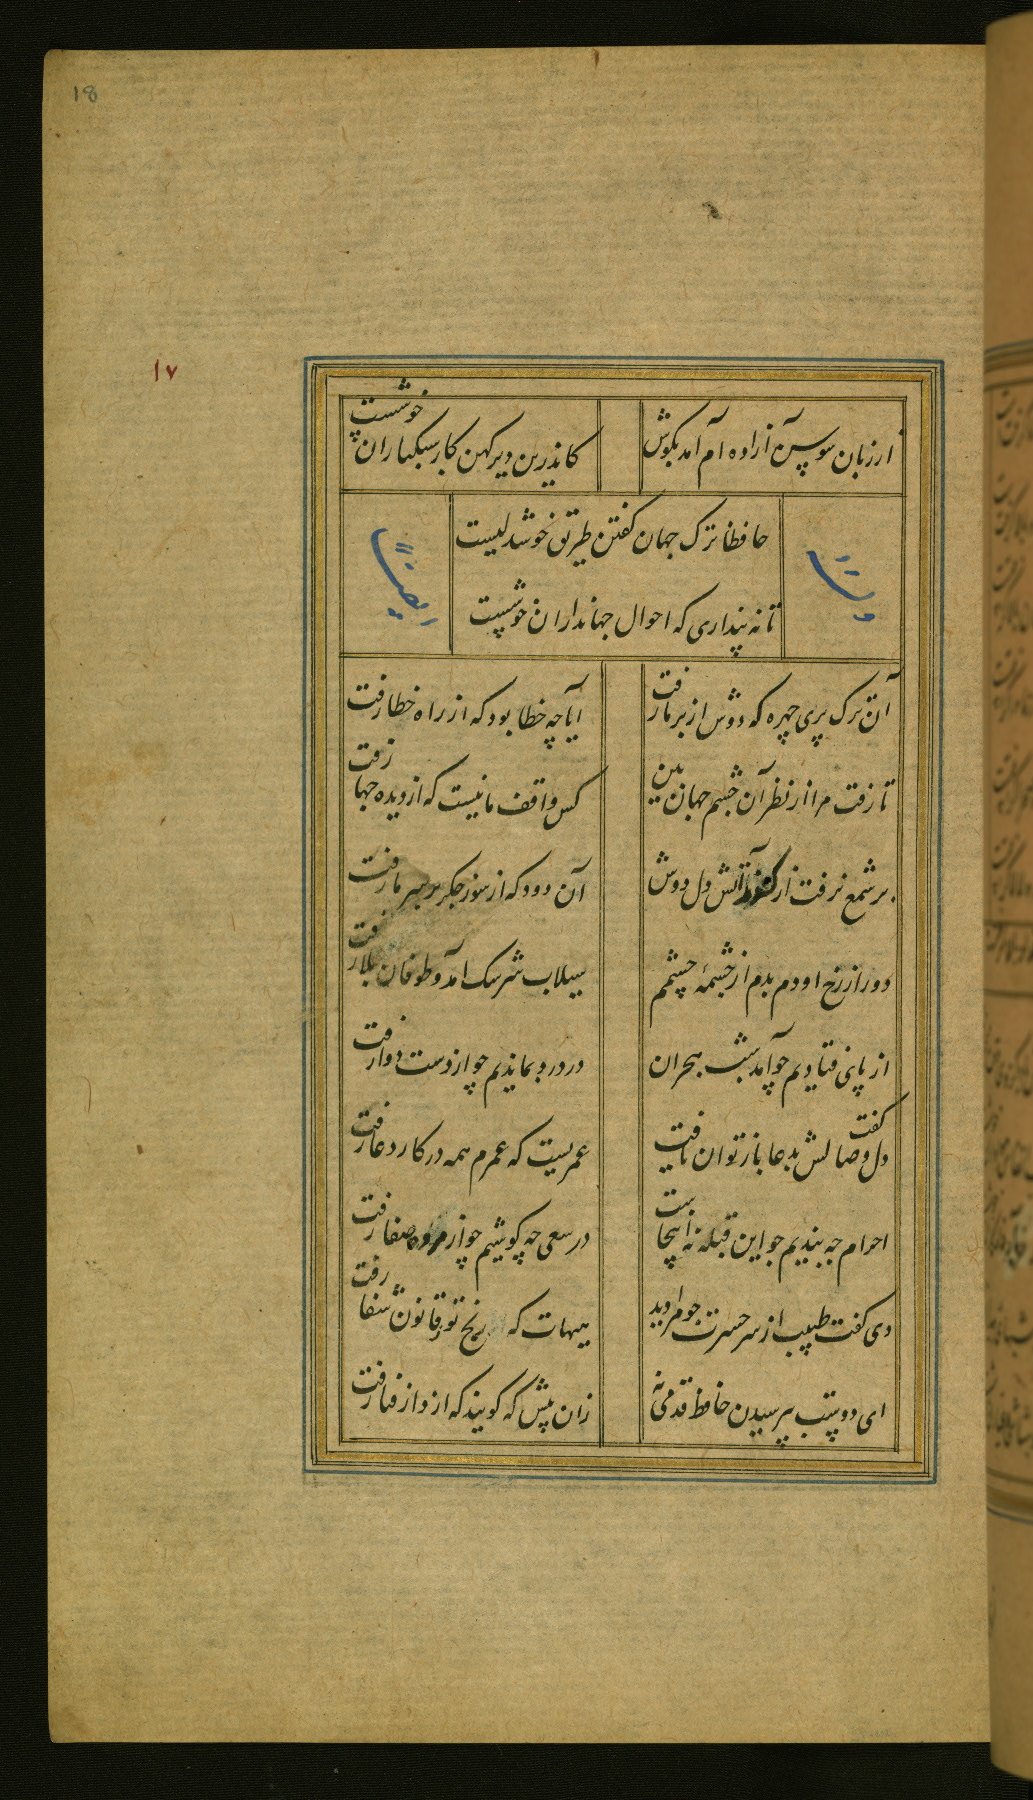 18
۱۷
از زبان سوسن آزاده ام آمد بگوش
کاندرین دیر کهن کار سبکباران خوشست
حافظا ترک جهان گفتن طریق خوشدلیست
تا نه پنداری که احوال جهانداران خوشست
وله
ایضاً
آن ترک پری چهره که دوش از بر ما رفت
آیا چه خطا بود که از راه خطا رفت
تا رفت مرا از نظر آن چشم جهان بین
کس واقف ما نیست که از دیده چها رفت
بر شمع نرفت از آتش دل دوش
آن دود که از سوز جگر بر سر ما رفت
دور از رخ او دم بدم از چشمهٔ چشمم
سیلاب سرشک آمد و طوفان بلا رفت
از پای فتادیم چو آمد شب هجران
در درد بماندیم چو از دست دوا رفت
دل گفت وصالش بدعا باز توان یافت
عمریست که عمرم همه در کار دعا رفت
احرام چه بندیم چو این قبله نه اینجاست
در سعی چه کوشیم چو از مروه صفا رفت
دی گفت طبیب از سر حسرت چو مرا دید
هیهات که رنج تو ز قانون شفا رفت
ای دوست بپرسیدن حافظ قدمی نه
زان پیش که گویند که از دار فنا رفت